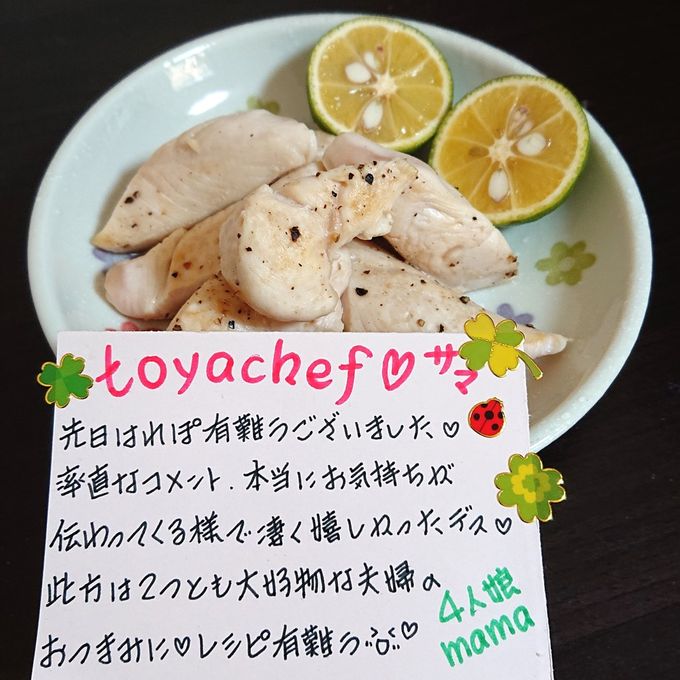 toyachef♡サマ
先日はれぽ有難うございました♡
率直なコメント、本当にお気持ちが
伝わってくる様で凄く嬉しかったデス♡
此方は2つとも大好物な夫婦の
おつまみに♡レシピ有難う♡
4人娘
mama